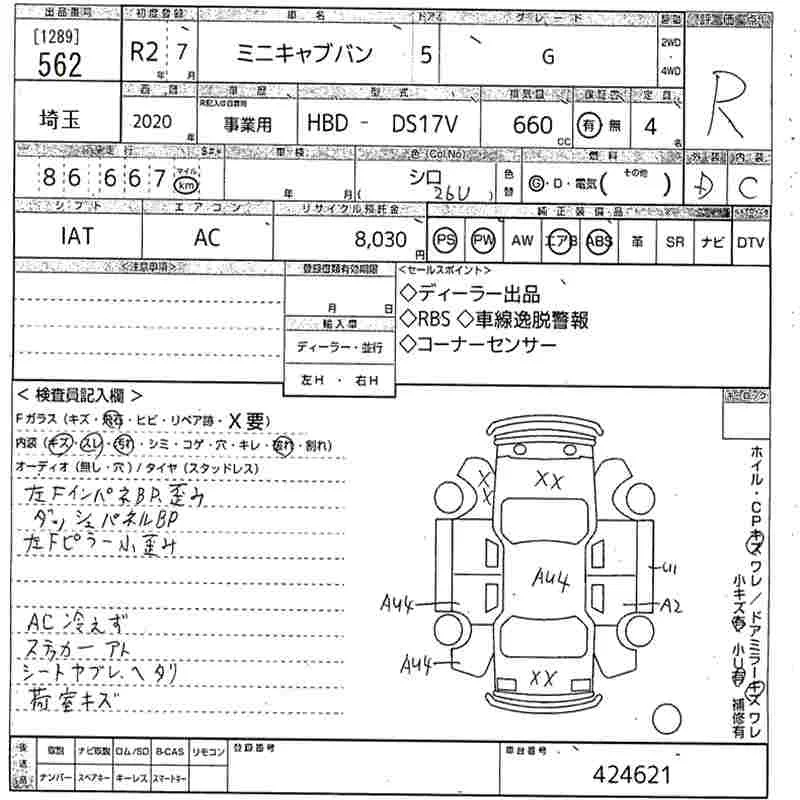 出品番号 初度登録 車名 ドア数 グレード 駆動 評価点
[1289]
562 R2 年 7 月 ミニキャブバン 5 G 2WD ・ 4WD R
西暦 車歴 型式 排気量 保証書 定員
未記入は自家用
埼玉 2020 年 事業用 HBD - DS17V 660 CC 有 無 4 名
走行 車検 色(Col No) 燃料 外装 内装
86,667 マイル km 年 月 シロ ( 26U ) 色替 G・D・電気( その他 ) D C
シフト エアコン リサイクル預託金 純正装備品
IAT AC 8,030 円 PS PW AW エアB ABS 革 SR ナビ DTV
<注意事項> 登録書類有効期限 <セールスポイント>
月 日 ◇ディーラー出品
輸入車 ◇RBS ◇車線逸脱警報
ディーラー・並行 ◇コーナーセンサー
左H ・ 右H
< 検査員記入欄 > キーロック
Fガラス(キズ・飛石・ヒビ・リペア跡・X要)
内装(キズ・スレ・汚れ・シミ・コゲ・穴・キレ・割れ)
オーディオ(無し・穴)/タイヤ(スタッドレス)
左FインパネBP,歪み
ダッシュパネルBP
左Fピラー小歪み
AC冷えず
ステッカーアト
シートヤブレ、ヘタリ
荷室キズ
XX
X
X
AU4
U1
AU4 A2
AU4
XX
ホイル・CPキズワレ/ドアミラーキズワレ
小キズ有 小U有 補修有
後送品 取説 ナビ取説 ロム/SD B-CAS リモコン 登録番号 車台番号
ナンバー スペアキー キーレス スマートキー 424621